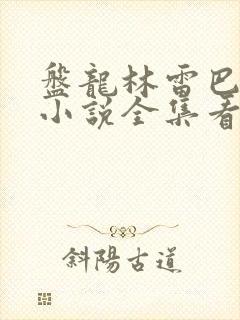 盤龍林雷巴
小說全集看
斜陽古道